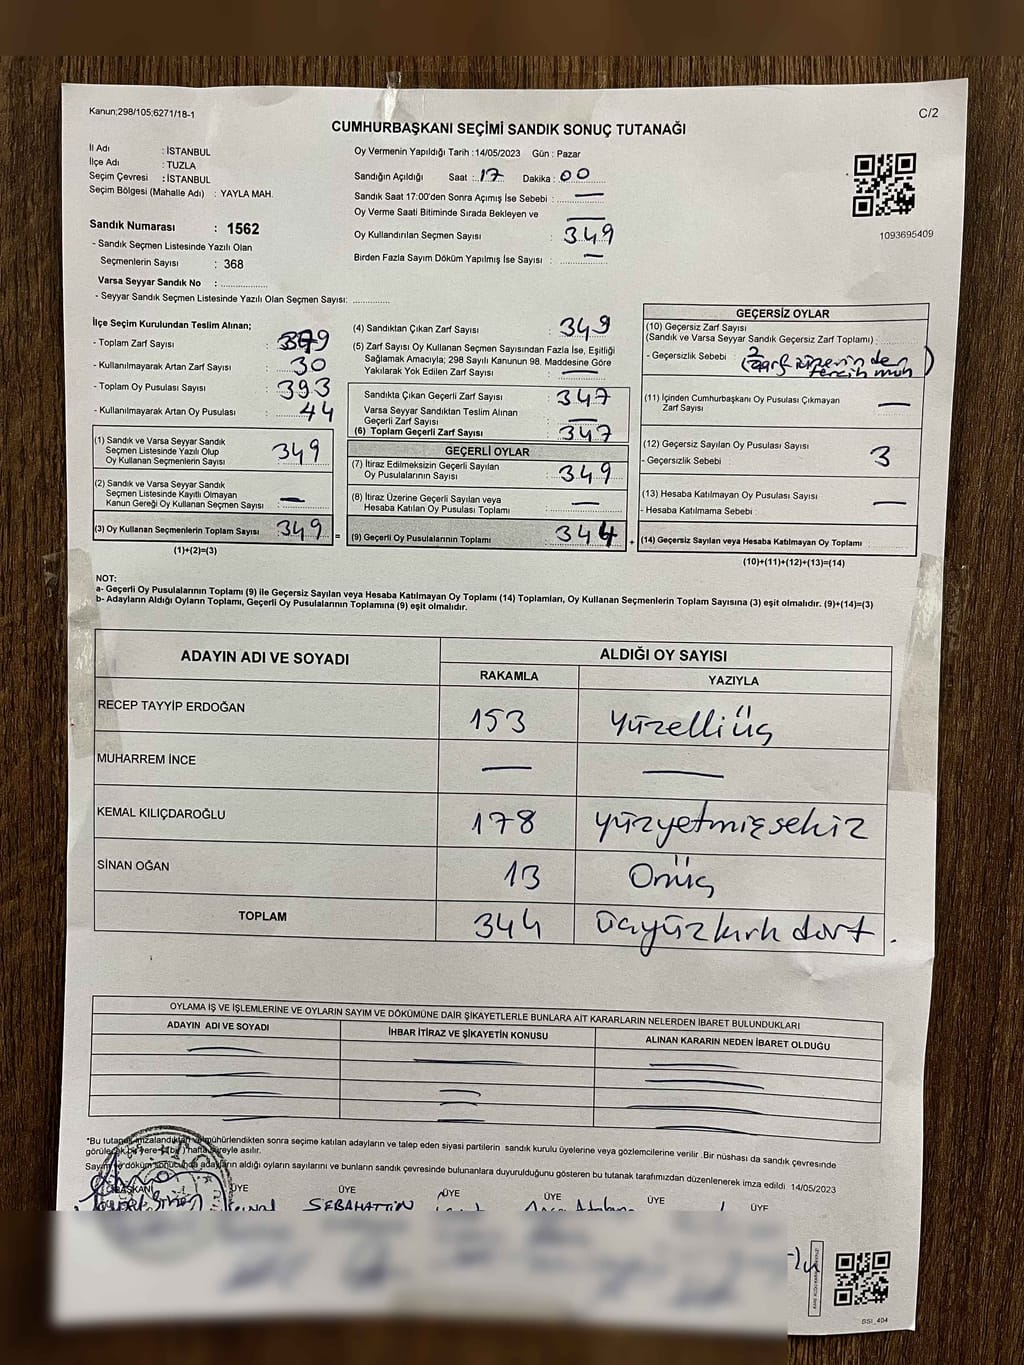 Kanun;298/105;6271/18-1
C/2
CUMHURBAŞKANI SEÇİMİ SANDIK SONUÇ TUTANAĞI
İl Adı : İSTANBUL
İlçe Adı : TUZLA
Seçim Çevresi : İSTANBUL
Seçim Bölgesi (Mahalle Adı) : YAYLA MAH.
Sandık Numarası : 1562
- Sandık Seçmen Listesinde Yazılı Olan
Seçmenlerin Sayısı : 368
Varsa Seyyar Sandık No :
- Seyyar Sandık Seçmen Listesinde Yazılı Olan Seçmen Sayısı:
Oy Vermenin Yapıldığı Tarih :14/05/2023 Gün : Pazar
Sandığın Açıldığı Saat : 17 Dakika : 00
Sandık Saat 17:00'den Sonra Açımış İse Sebebi : —
Oy Verme Saati Bitiminde Sırada Bekleyen ve —
Oy Kullandırılan Seçmen Sayısı : 349
Birden Fazla Sayım Döküm Yapılmış İse Sayısı : —
1093695409
İlçe Seçim Kurulundan Teslim Alınan;
- Toplam Zarf Sayısı :
- Kullanılmayarak Artan Zarf Sayısı : 30
- Toplam Oy Pusulası Sayısı : 393
- Kullanılmayarak Artan Oy Pusulası : 44
(1) Sandık ve Varsa Seyyar Sandık
Seçmen Listesinde Yazılı Olup
Oy Kullanan Seçmenlerin Sayısı 349
(2) Sandık ve Varsa Seyyar Sandık
Seçmen Listesinde Kayıtlı Olmayan
Kanun Gereği Oy Kullanan Seçmen Sayısı : —
(3) Oy Kullanan Seçmenlerin Toplam Sayısı : 349 =
(1)+(2)=(3)
(4) Sandıktan Çıkan Zarf Sayısı : 349
(5) Zarf Sayısı Oy Kullanan Seçmen Sayısından Fazla İse, Eşitliği
Sağlamak Amacıyla; 298 Sayılı Kanunun 98. Maddesine Göre
Yakılarak Yok Edilen Zarf Sayısı : —
Sandıkta Çıkan Geçerli Zarf Sayısı : 347
Varsa Seyyar Sandıktan Teslim Alınan
Geçerli Zarf Sayısı : —
(6) Toplam Geçerli Zarf Sayısı : 347
GEÇERLİ OYLAR
(7) İtiraz Edilmeksizin Geçerli Sayılan
Oy Pusulalarının Sayısı : 349
(8) İtiraz Üzerine Geçerli Sayılan veya
Hesaba Katılan Oy Pusulası Toplamı : —
(9) Geçerli Oy Pusulalarının Toplamı : 344 +
GEÇERSİZ OYLAR
(10) Geçersiz Zarf Sayısı
(Sandık ve Varsa Seyyar Sandık Geçersiz Zarf Toplamı) :
- Geçersizlik Sebebi : 2 (zarf üzerinden tercih müh)
(11) İçinden Cumhurbaşkanı Oy Pusulası Çıkmayan
Zarf Sayısı : —
(12) Geçersiz Sayılan Oy Pusulası Sayısı
- Geçersizlik Sebebi : 3
(13) Hesaba Katılmayan Oy Pusulası Sayısı : —
- Hesaba Katılmama Sebebi :
(14) Geçersiz Sayılan veya Hesaba Katılmayan Oy Toplamı :
(10)+(11)+(12)+(13)=(14)
NOT:
a- Geçerli Oy Pusulalarının Toplamı (9) ile Geçersiz Sayılan veya Hesaba Katılmayan Oy Toplamı (14) Toplamları, Oy Kullanan Seçmenlerin Toplam Sayısına (3) eşit olmalıdır. (9)+(14)=(3)
b- Adayların Aldığı Oyların Toplamı, Geçerli Oy Pusulalarının Toplamına (9) eşit olmalıdır.
ADAYIN ADI VE SOYADI ALDIĞI OY SAYISI
RAKAMLA YAZIYLA
RECEP TAYYİP ERDOĞAN 153 yüzelliüç
MUHARREM İNCE — —
KEMAL KILIÇDAROĞLU 178 yüzyetmişsekiz
SİNAN OĞAN 13 Onüç
TOPLAM 344 üçyüzkırkdört.
OYLAMA İŞ VE İŞLEMLERİNE VE OYLARIN SAYIM VE DÖKÜMÜNE DAİR ŞİKAYETLERLE BUNLARA AİT KARARLARIN NELERDEN İBARET BULUNDUKLARI
ADAYIN ADI VE SOYADI İHBAR İTİRAZ VE ŞİKAYETİN KONUSU ALINAN KARARIN NEDEN İBARET OLDUĞU
*Bu tutanak imzalandıktan ve mühürlendikten sonra seçime katılan adayların ve talep eden siyasi partilerin sandık kurulu üyelerine veya gözlemcilerine verilir .Bir nüshası da sandık çevresinde
görülecek bir yere 1 (bir) hafta süreyle asılır.
Sayım ve döküm sonucunda adayların aldığı oyların sayılarını ve bunların sandık çevresinde bulunanlara duyurulduğunu gösteren bu tutanak tarafımızdan düzenlenerek imza edildi 14/05/2023
BAŞKAN ÜYE ÜYE ÜYE ÜYE ÜYE ÜYE
SEBAHATTİN
SSI_404